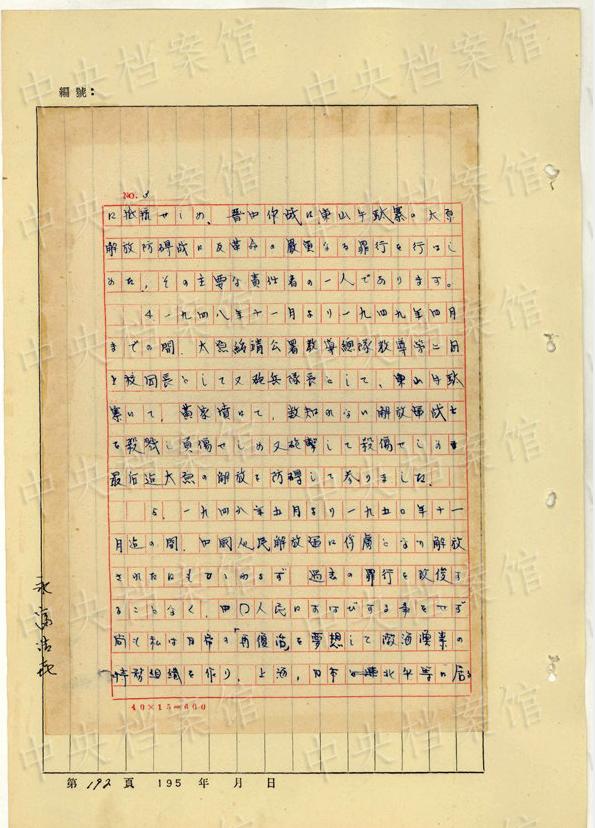 編號：
NO. 3
に抵抗せしめ、晋中作战に東山牛駄寨の太原
解放防碍战に反革命の嚴重なる罪行を行はし
めた、その主要な責任者の一人であります。
4、一九四八年十一月より一九四九年四月
までの間、太原綏靖公署教導總隊教導第二団
上校団長として又砲兵隊長として、東山牛駄
寨に、黄家墳にて、数知れない解放軍战士
を殺戮し負傷せしめ又砲撃して殺傷せしめ
最后迄太原の解放を防碍して参りました。
5、一九四九年五月より一九五〇年十一
月迄の間、中国人民解放軍に俘虜となり解放
されたにもかゝわらず 過去の罪行を改悛す
ることなく、中国人民にわびする事をせず
尚も私は日帝の再復活を夢想して
特務組織を作り、上海、日本 北平等に居る
永富浩喜
40×15=600
第 192 頁 195 年 月 日
中央档案馆